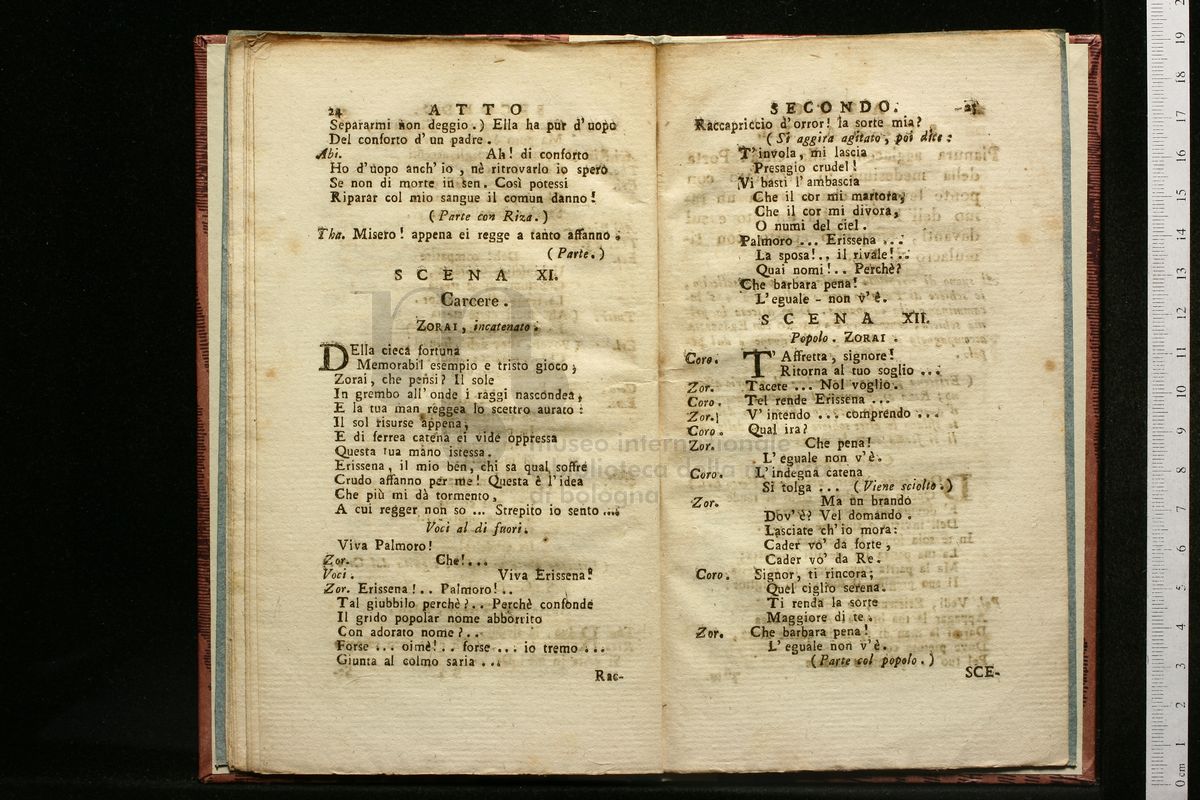 24 ATTO
Separarmi non deggio.) Ella ha pur d'uopo
Del conforto d'un padre.
Abi. Ah! di conforto
Ho d'uopo anch'io, nè ritrovarlo io spero
Se non di morte in sen. Così potessi
Riparar col mio sangue il comun danno!
(Parte con Riza.)
Tha. Misero! appena ei regge a tanto affanno.
(Parte.)
SCENA XI.
Carcere.
ZORAI, incatenato.
DElla cieca fortuna
Memorabil esempio e tristo gioco,
Zorai, che pensi? Il sole
In grembo all'onde i raggi nascondea,
E la tua man reggea lo scettro aurato:
Il sol risurse appena,
E di ferrea catena ei vide oppressa
Questa tua mano istessa.
Erissena, il mio ben, chi sa qual soffre
Crudo affanno per me! Questa è l'idea
Che più mi dà tormento,
A cui regger non so ... Strepito io sento ...
Voci al di fuori.
Viva Palmoro!
Zor. Che!...
Voci. Viva Erissena!
Zor. Erissena!.. Palmoro!..
Tal giubbilo perchè?.. Perchè confonde
Il grido popolar nome abborrito
Con adorato nome?..
Forse ... oimè!.. forse ... io tremo ...
Giunta al colmo saria ...
Rac-
SECONDO. 25
Raccapriccio d'orror! la sorte mia?
(Si aggira agitato, poi dice:
T'invola, mi lascia
Presagio crudel!
Vi basti l'ambascia
Che il cor mi martora,
Che il cor mi divora,
O numi del ciel.
Palmoro ... Erissena ...
La sposa!.. il rivale!..
Quai nomi!.. Perchè?
Che barbara pena!
L'eguale - non v'è.
SCENA XII.
Popolo. ZORAI.
Coro. T'Affretta, signore!
Ritorna al tuo soglio ...
Zor. Tacete ... Nol voglio.
Coro. Tel rende Erissena ...
Zor. V'intendo ... comprendo ...
Coro. Qual ira?
Zor. Che pena!
L'eguale non v'è.
Coro. L'indegna catena
Si tolga ... (Viene sciolto.)
Zor. Ma un brando
Dov'è? Vel domando.
Lasciate ch'io mora:
Cader vo' da forte,
Cader vo' da Re.
Coro. Signor, ti rincora;
Quel ciglio serena.
Ti renda la sorte
Maggiore di te.
Zor. Che barbara pena!
L'eguale non v'è.
(Parte col popolo.)
SCE-
museo internazionale
biblioteca della m
di bologna
0 cm 1 2 3 4 5 6 7 8 9 10 11 12 13 14 15 16 17 18 19